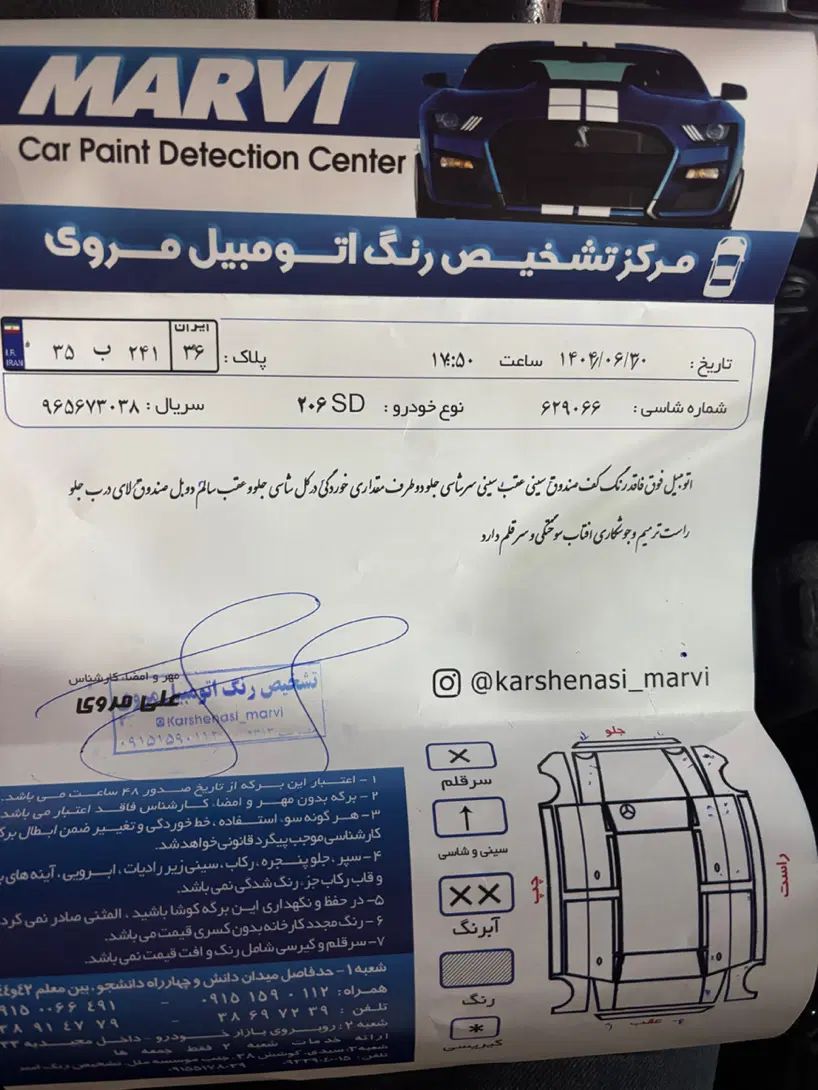 MARVI
Car Paint Detection Center
مرکز تشخیص رنگ اتومبیل مروی
تاریخ : ۱۴۰۴/۰۶/۳۰ ساعت ۱۷:۵۰ پلاک : ایران ۳۶ ۲۴۱ ب ۳۵ I.R. IRAN
شماره شاسی : ۶۲۹۰۶۶ نوع خودرو : ۲۰۶ SD سریال : ۹۶۵۶۷۳۰۳۸
اتومبیل فوق فاقد رنگ کف صندوق سینی عقب سینی سرشاسی جلو دو طرف مقداری خوردگی در کل شاسی جلو و عقب سالم دوبل صندوق لای درب جلو
راست ترمیم و جوشکاری افتاب سوختگی و سر قلم دارد
@karshenasi_marvi
مهر و امضاء کارشناس
علی مروی
تشخیص رنگ اتومبیل مروی
@Karshenasi_marvi
جلو
سرقلم
سینی و شاسی
آبرنگ
رنگ
کبریسی
چپ
راست
عقب
۱- اعتبار این برگه از تاریخ صدور ۴۸ ساعت می باشد.
۲- برگه بدون مهر و امضاء کارشناس فاقد اعتبار می باشد
۳- هر گونه سوء استفاده ، خط خوردگی و تغییر ضمن ابطال
کارشناسی موجب پیگرد قانونی خواهد شد.
۴- سپر ، جلو پنجره ، رکاب ، سینی زیر رادیات ، ابرویی ، آینه های
و قاب رکاب جزء رنگ شدگی نمی باشد.
۵- در حفظ و نگهداری این برگه کوشا باشید ، المثنی صادر نمی
۶- رنگ مجدد کارخانه بدون کسری قیمت می باشد.
۷- سرقلم و کبرسی شامل رنگ و افت قیمت نمی باشد.
شعبه ۱- حدفاصل میدان دانش و چهارراه دانشجو، بین معلم ۴۲و۴۴
همراه : ۱۱۲ ۰ ۱۵۹ ۰۹۱۵ - ۴۹۱ ۶۶ ۰۰
تلفن : ۳۹ ۷۲ ۶۹ ۳۸ - ۷۹ ۴۷ ۹۱
شعبه ۲: روبروی بازار خودرو - داخل
ارائه خدمات شعبه ۲ فقط جمعه ها